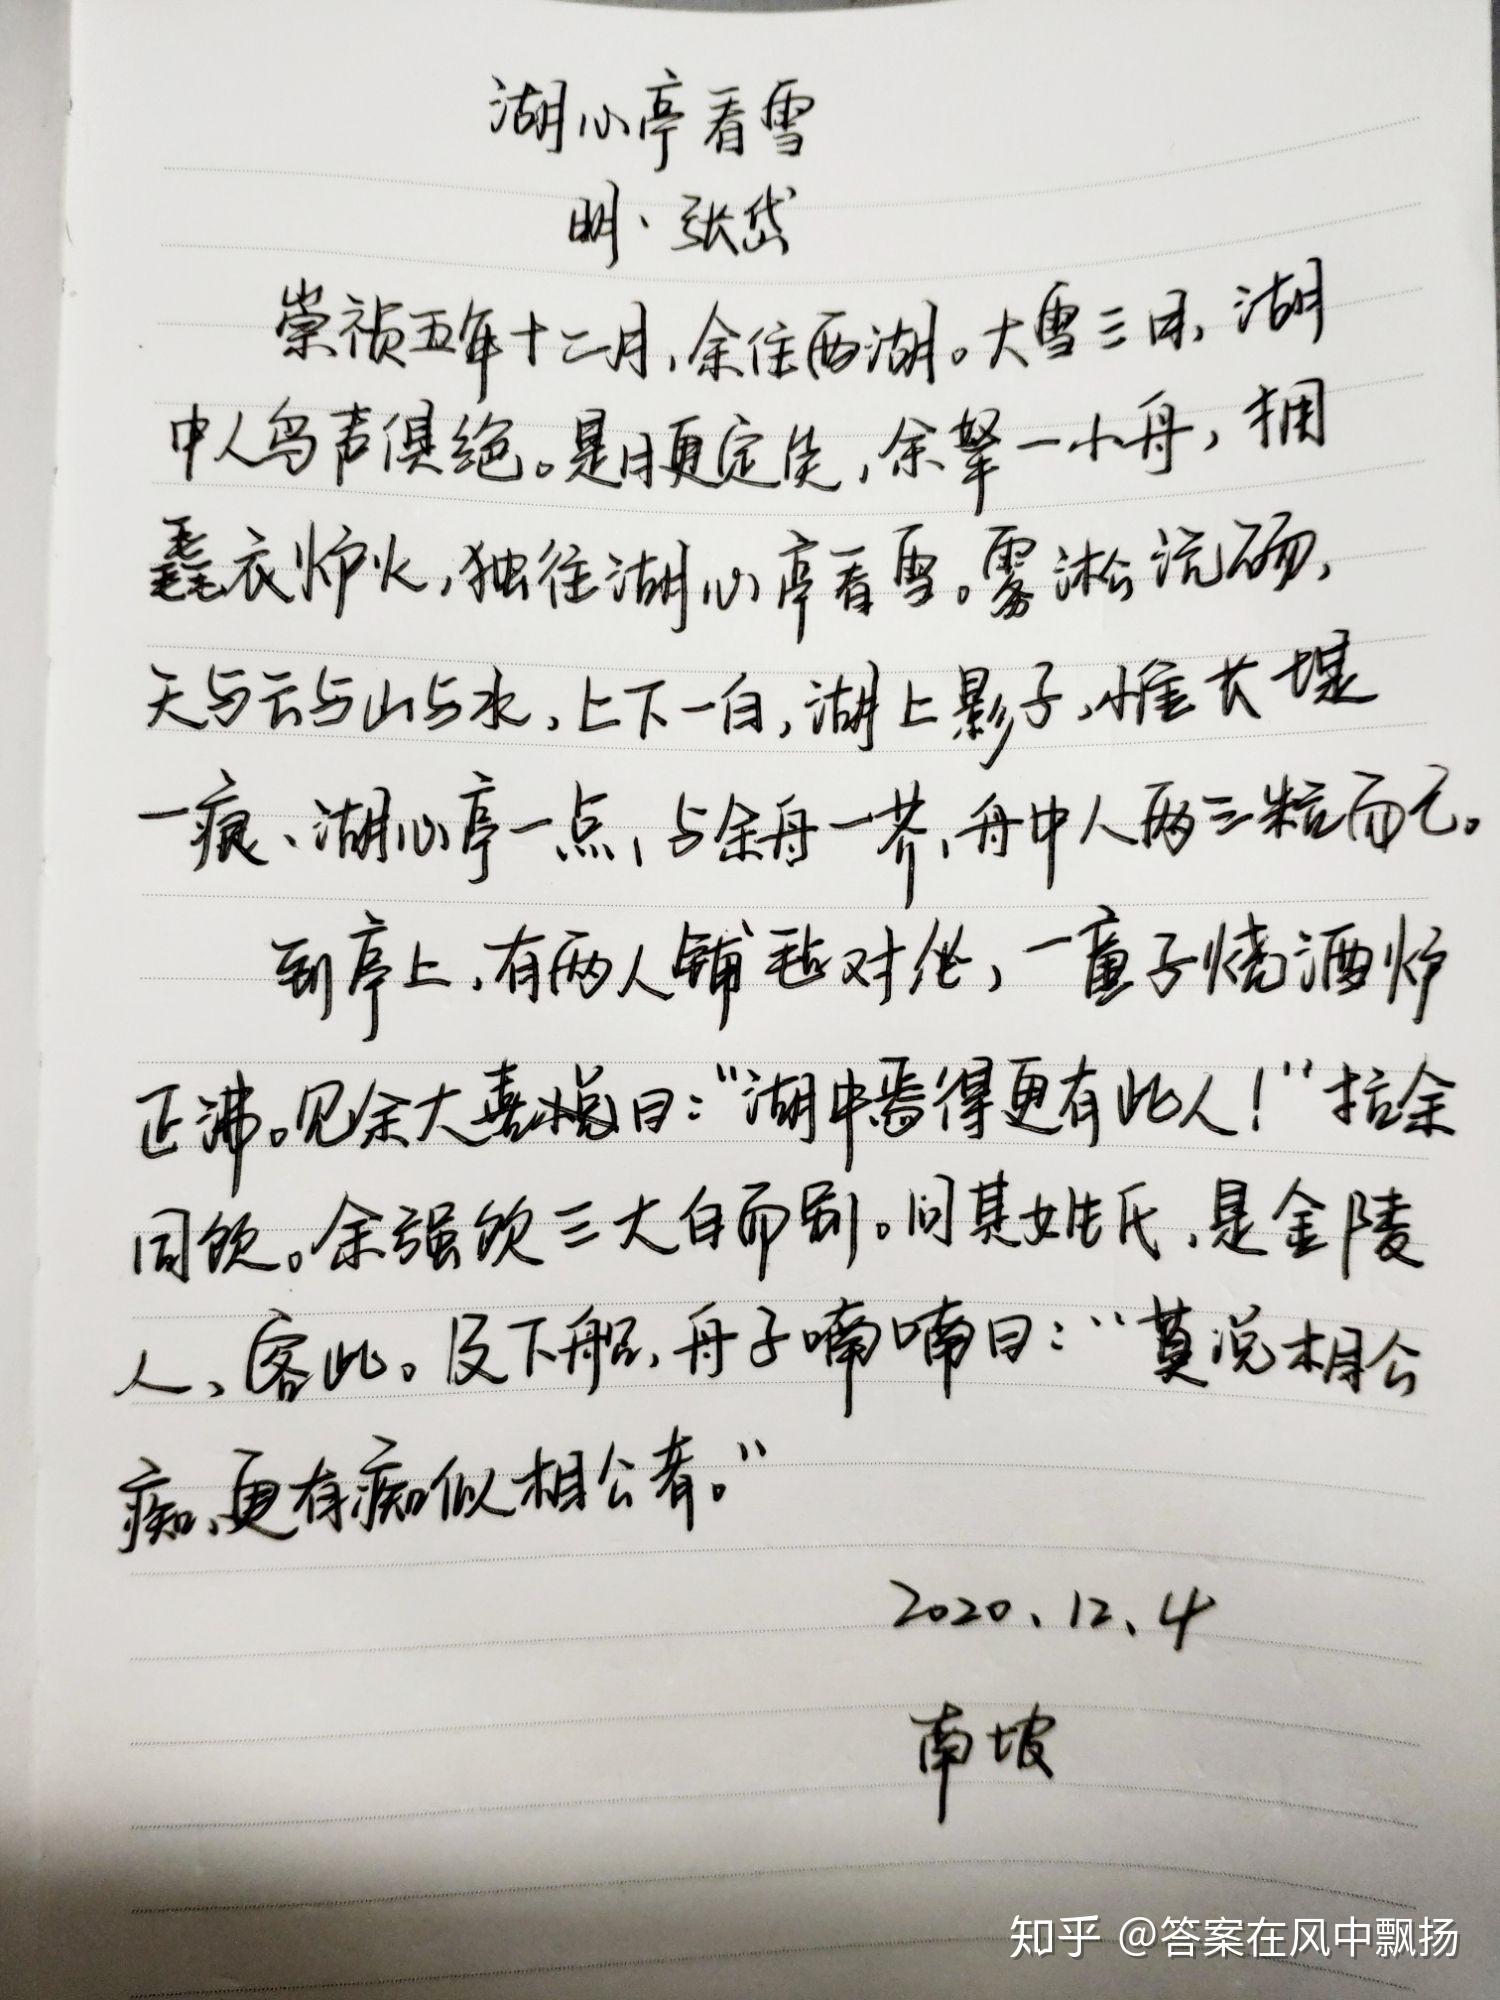 湖心亭看雪
明·张岱
崇祯五年十二月,余住西湖。大雪三日,湖
中人鸟声俱绝。是日更定矣,余拏一小舟,拥
毳衣炉火,独往湖心亭看雪。雾淞沆砀,
天与云与山与水,上下一白,湖上影子,惟长堤
一痕、湖心亭一点,与余舟一芥,舟中人两三粒而已。
到亭上,有两人铺毡对坐,一童子烧酒炉
正沸。见余大喜曰:“湖中焉得更有此人!”拉余
同饮。余强饮三大白而别。问其姓氏,是金陵
人,客此。及下船,舟子喃喃曰:“莫说相公
痴,更有痴似相公者。”
2020.12.4
南坡
知乎 @答案在风中飘扬